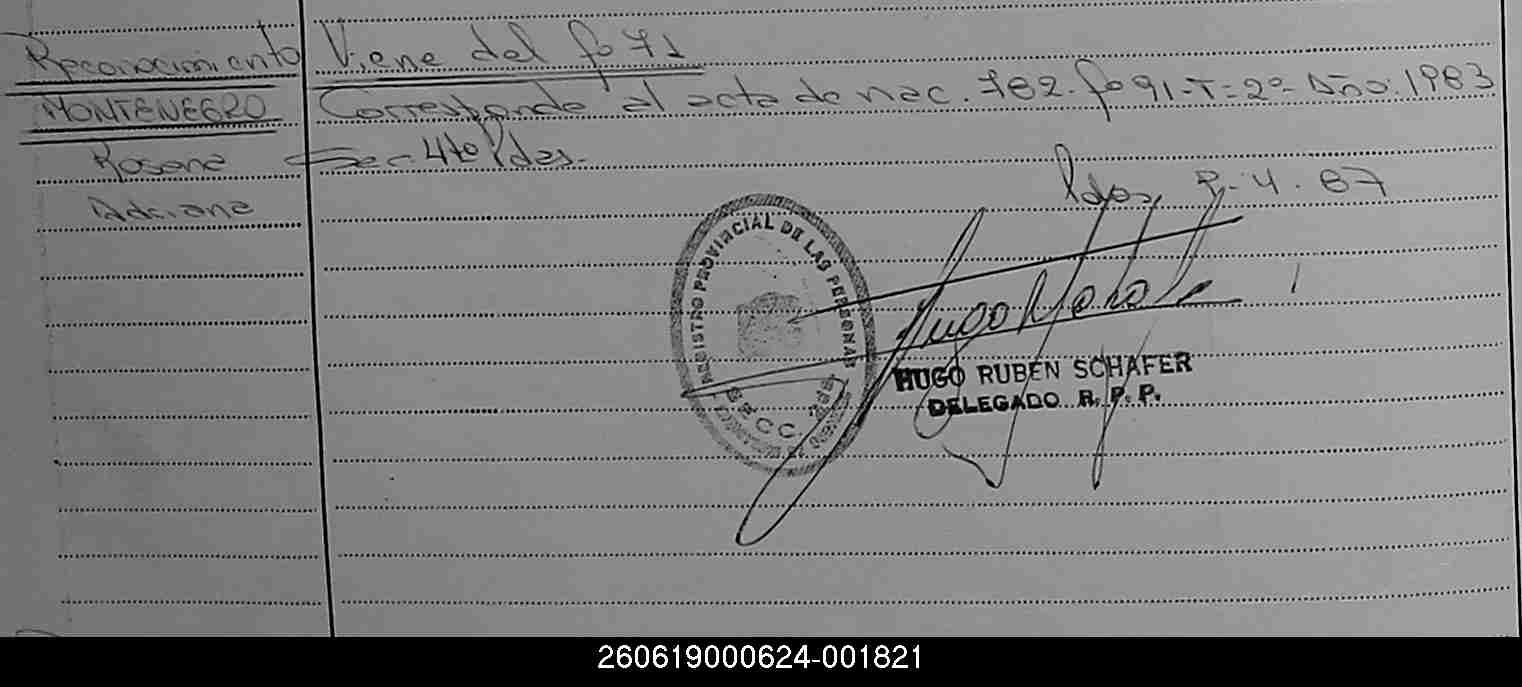 Reconocimiento Viene del fo 71
MONTENEGRO Corresponde al acta de nac. 782. fo 91-T=2º- Año: 1983
Rosana Sec 4ta Pdas.
Adriana Pdas, 9-4-87
REGISTRO PROVINCIAL DE LAS PERSONAS
SECC.
HUGO RUBEN SCHAFER
DELEGADO R. P. P.
260619000624-001821